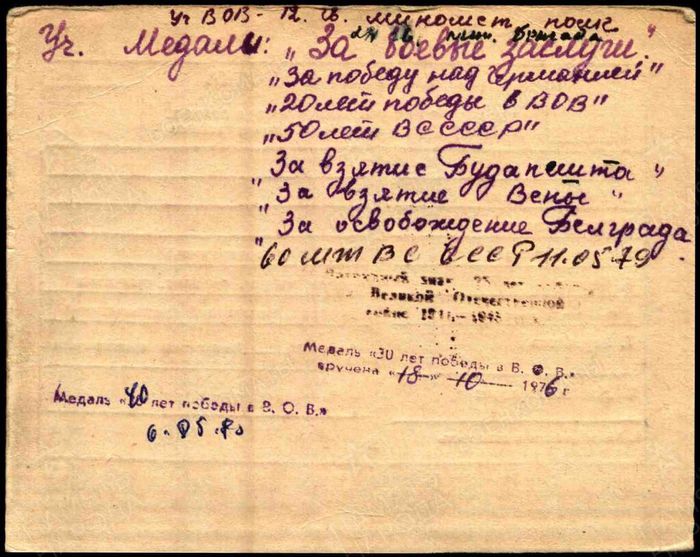 Уч ВОВ - 12. гв. миномет. полк
Уч. Медали: „За боевые заслуги."
бригада
„За победу над Германией"
„20 лет победы в ВОВ"
„50 лет ВС СССР"
„За взятие Будапешта"
„За взятие Вены"
„За освобождение Белграда"
60 лет ВС СССР 11.05.79
Нагрудный знак 25 лет победы
Великой Отечественной
войне 1941—1945
Медаль «30 лет победы в В. О. В.»
вручена «18» 10 1976 г
Медаль «40 лет победы в В. О. В.»
6.05.85